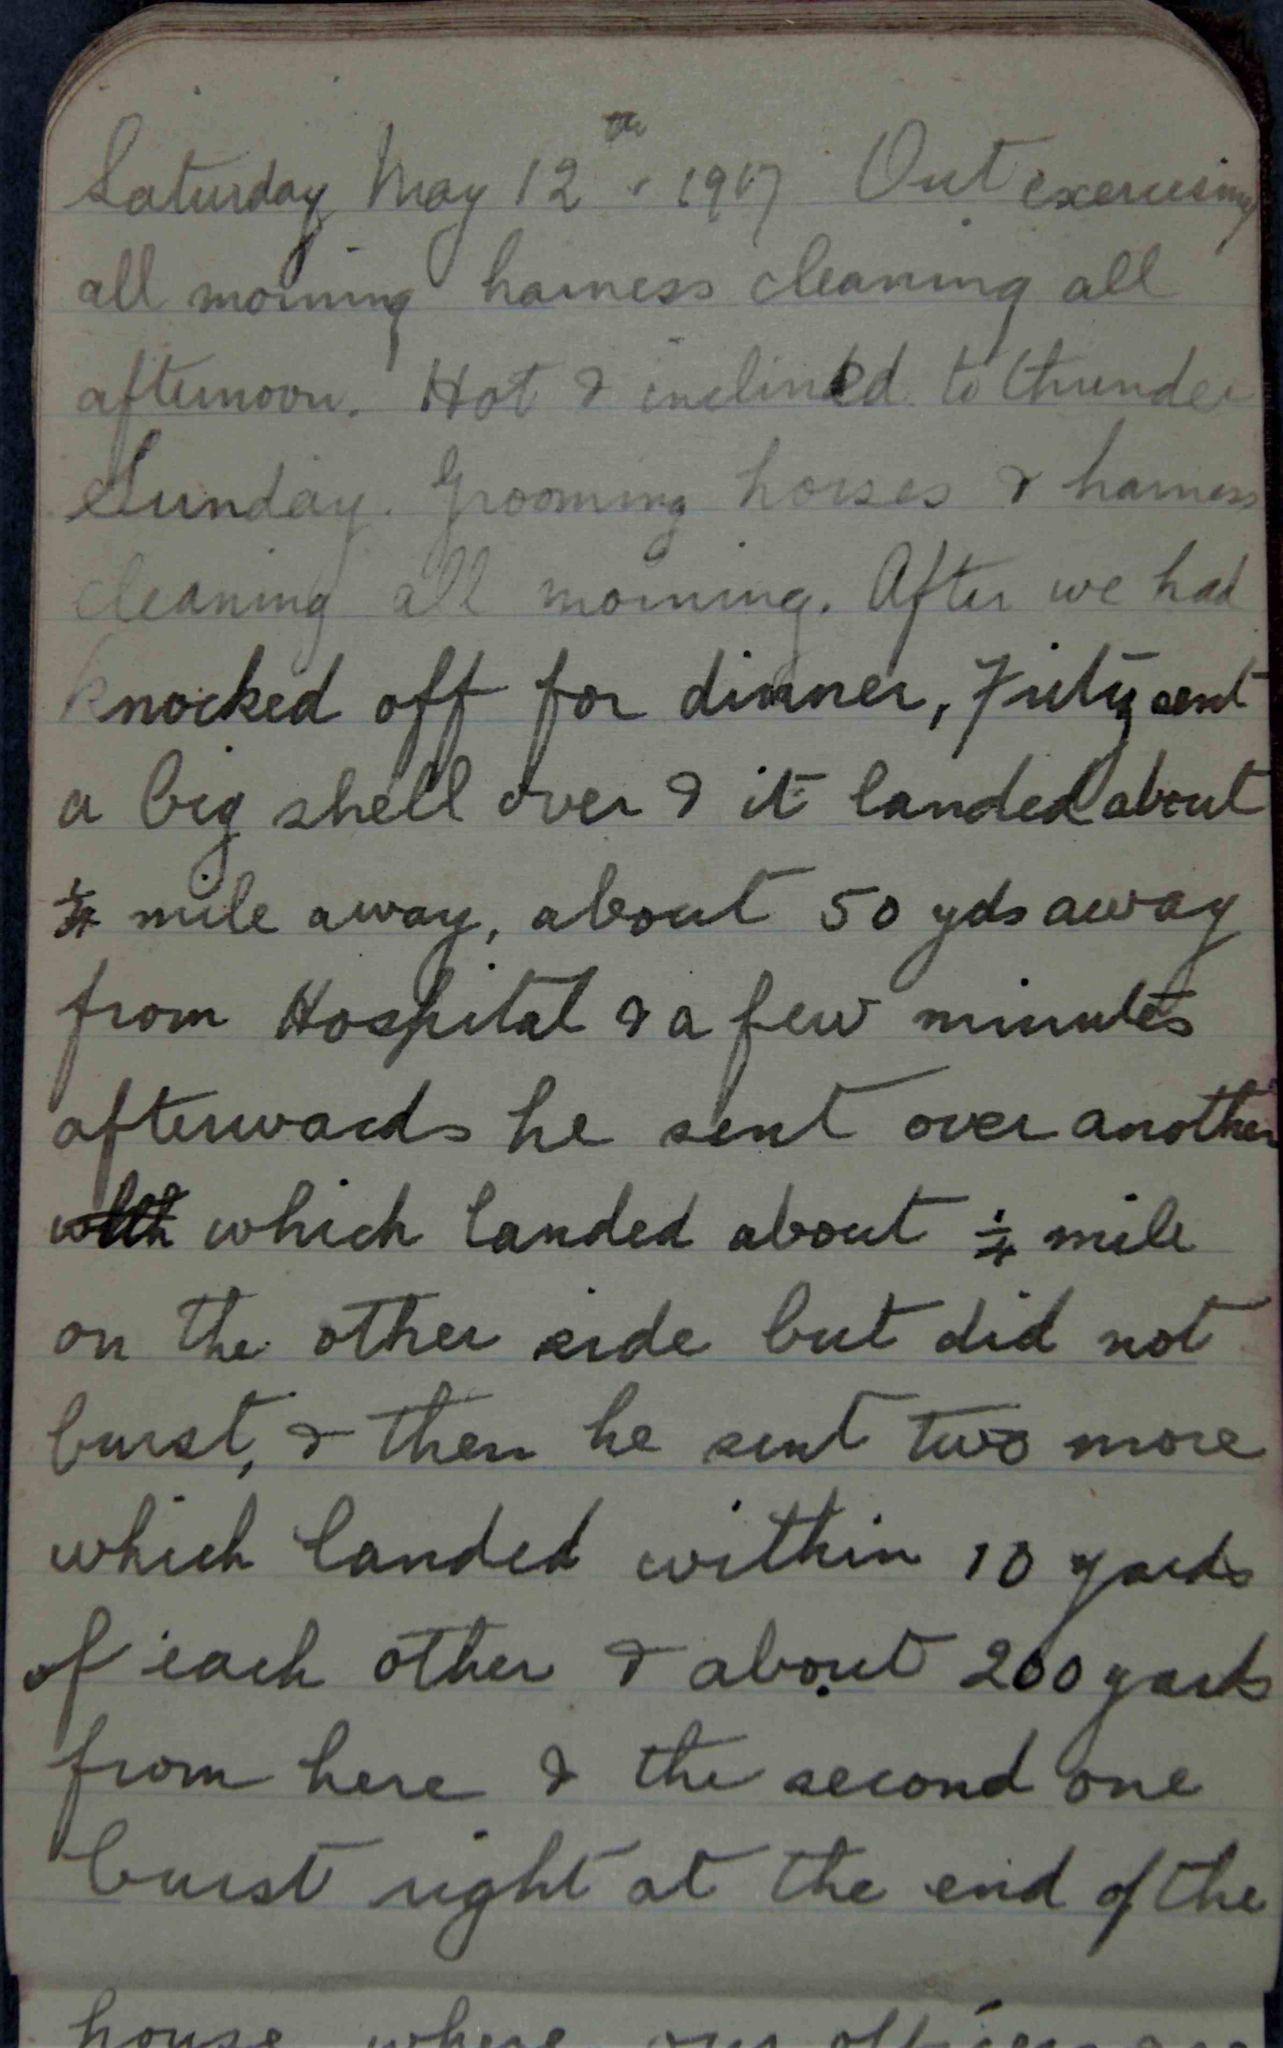 Saturday May 12th 1917 Out exercising
all morning harness cleaning all
afternoon. Hot & inclined to thunder
Sunday. Grooming horses & harness
cleaning all morning. After we had
knocked off for dinner, Fritz sent
a big shell over & it landed about
¼ mile away, about 50 yds away
from Hospital & a few minutes
afterwards he sent over another
which landed about ¼ mile
on the other side but did not
burst, & then he sent two more
which landed within 10 yards
of each other & about 200 yards
from here & the second one
burst right at the end of the
house where our officers are